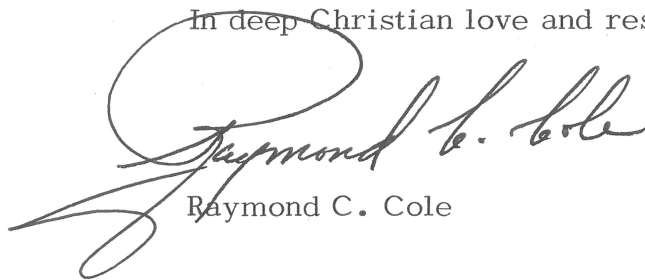 In deep Christian love and res
Raymond C. Cole
Raymond C. Cole